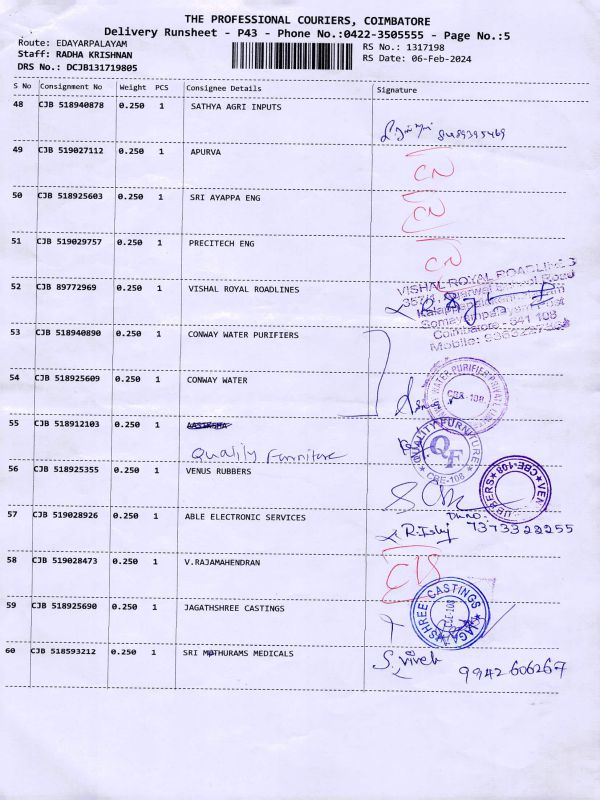 THE PROFESSIONAL COURIERS, COIMBATORE
Delivery Runsheet - P43 - Phone No.:0422-3505555 - Page No.:5
Route: EDAYARPALAYAM
RS No.: 1317198
Staff: RADHA KRISHNAN
RS Date: 06-Feb-2024
DRS No.: DCJB131719805
S No Consignment No Weight PCS Consignee Details Signature
48 CJB 518940878 0.250 1 SATHYA AGRI INPUTS
8489395469
49 CJB 519027112 0.250 1 APURVA
CN
50 CJB 518925603 0.250 1 SRI AYAPPA ENG
CN
51 CJB 519029757 0.250 1 PRECITECH ENG
CN
52 CJB 89772969 0.250 1 VISHAL ROYAL ROADLINES
VISHAL ROYAL ROADLINES
Coimbatore - 641 108
Mobile:
53 CJB 518940890 0.250 1 CONWAY WATER PURIFIERS
54 CJB 518925609 0.250 1 CONWAY WATER
WATER PURIFIER PRIVATE
CBE-108
55 CJB 518912103 0.250 1
Quality Furniture
QUALITY FURNITURE
QF
CBE-108
56 CJB 518925355 0.250 1 VENUS RUBBERS
CBE-108
57 CJB 519028926 0.250 1 ABLE ELECTRONIC SERVICES
7373322255
58 CJB 519028473 0.250 1 V.RAJAMAHENDRAN
59 CJB 518925690 0.250 1 JAGATHSHREE CASTINGS
SHREE CASTINGS
CBE-108
60 CJB 518593212 0.250 1 SRI MATHURAMS MEDICALS
S. Vivek 9942606267